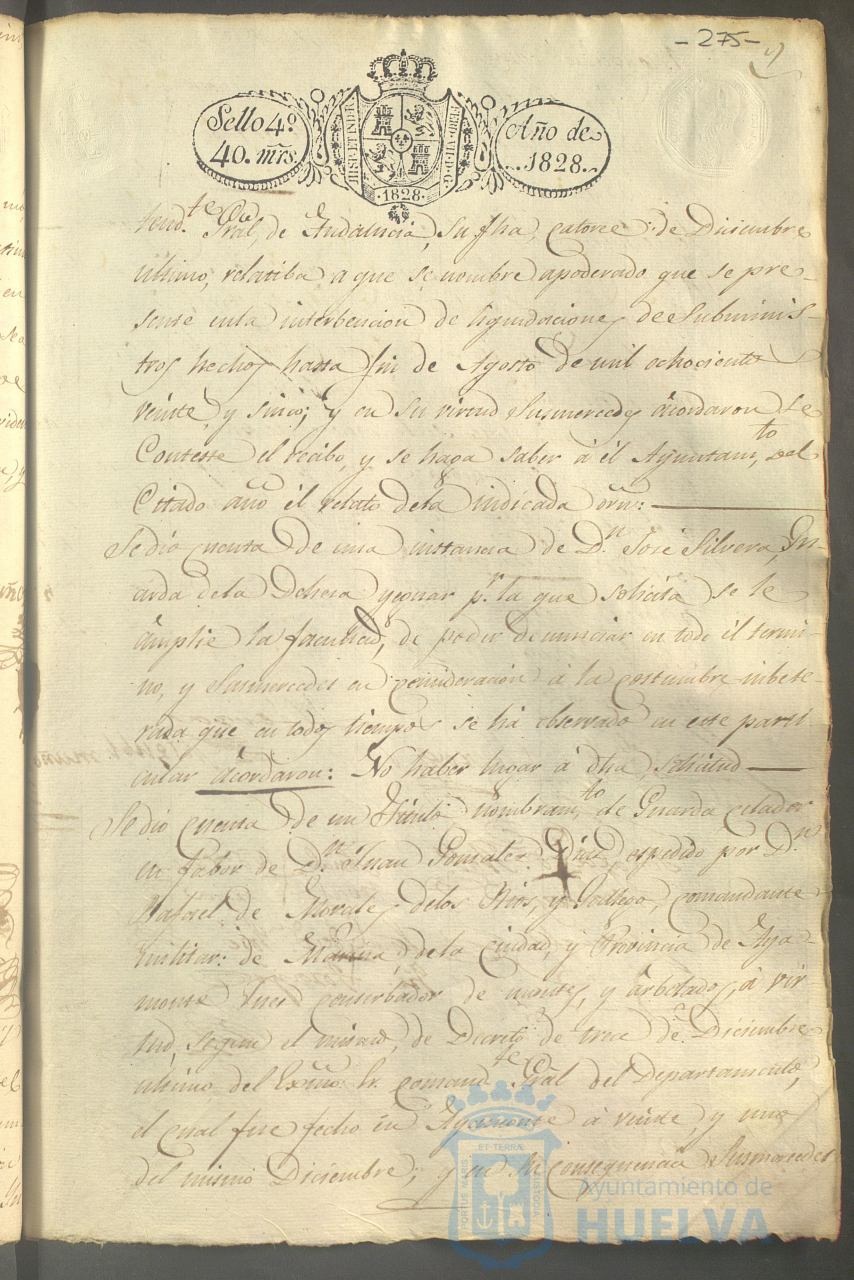 - 275 -
Sello 4º
40. mrs.
HISP. ET IND. R.
FERD. VII. D. G.
·1828·
Año de
1828.
tend.te Gral, de Andalucia, su fha, catorce de Diciembre
ultimo, relatiba a que se nombre apoderado que se pre-
sente en la interbencion de liquidaciones de Subminis-
tros hechos hasta fin de Agosto de mil ochociento
veinte, y sinco; y en su virtud Susmercedes acordaron se
Conteste el recibo, y se haga saber á él Ayuntam.to del
Citado año él relato dela indicada orn:
Se dio cuenta de una instancia de D.n José Silvera, Gu-
arda dela Dehesa yeguar p.r la que solicita se le
amplie la facultad, de poder denunciar en todo él termi-
no, y Susmercedes en consideracion á la costumbre inbete-
rada que en todos tiempos se há observado en este parti
cular acordaron: No haber lugar á dha, solicitud
Se dio cuenta de un titulo nombram.to de Guarda celador
en fabor de D.n Juan Gonzalez espedido por D.n
Rafael de Morales delos Rios, y Gallego, comandante
militar: de Marina, dela ciudad, y Provincia de Aya-
monte Jues conserbador de montes, y arbolados, á vir
tud, segun el mismo, de Decreto de trece de Diciembre
ultimo del Exmo. Sr. comand.te Gral del Departamento,
el cual fue fecho en Ayamonte á veinte, y uno
del mismo Diciembre; y en su consequencia Susmercedes
ET TERRÆ
PORTUS MARIS
CUSTODIA
Ayuntamiento de
HUELVA